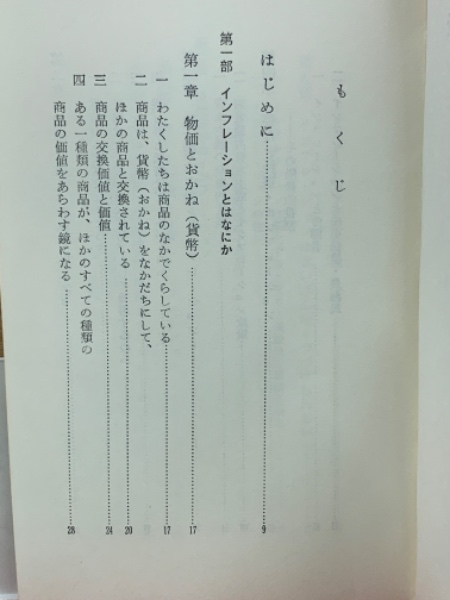 もくじ
はじめに……9
第一部 インフレーションとはなにか
第一章 物価とおかね(貨幣)……17
一 わたくしたちは商品のなかでくらしている……17
二 商品は、貨幣(おかね)をなかだちにして、
ほかの商品と交換されている……20
三 商品の交換価値と価値……24
四 ある一種類の商品が、ほかのすべての種類の
商品の価値をあらわす鏡になる……28